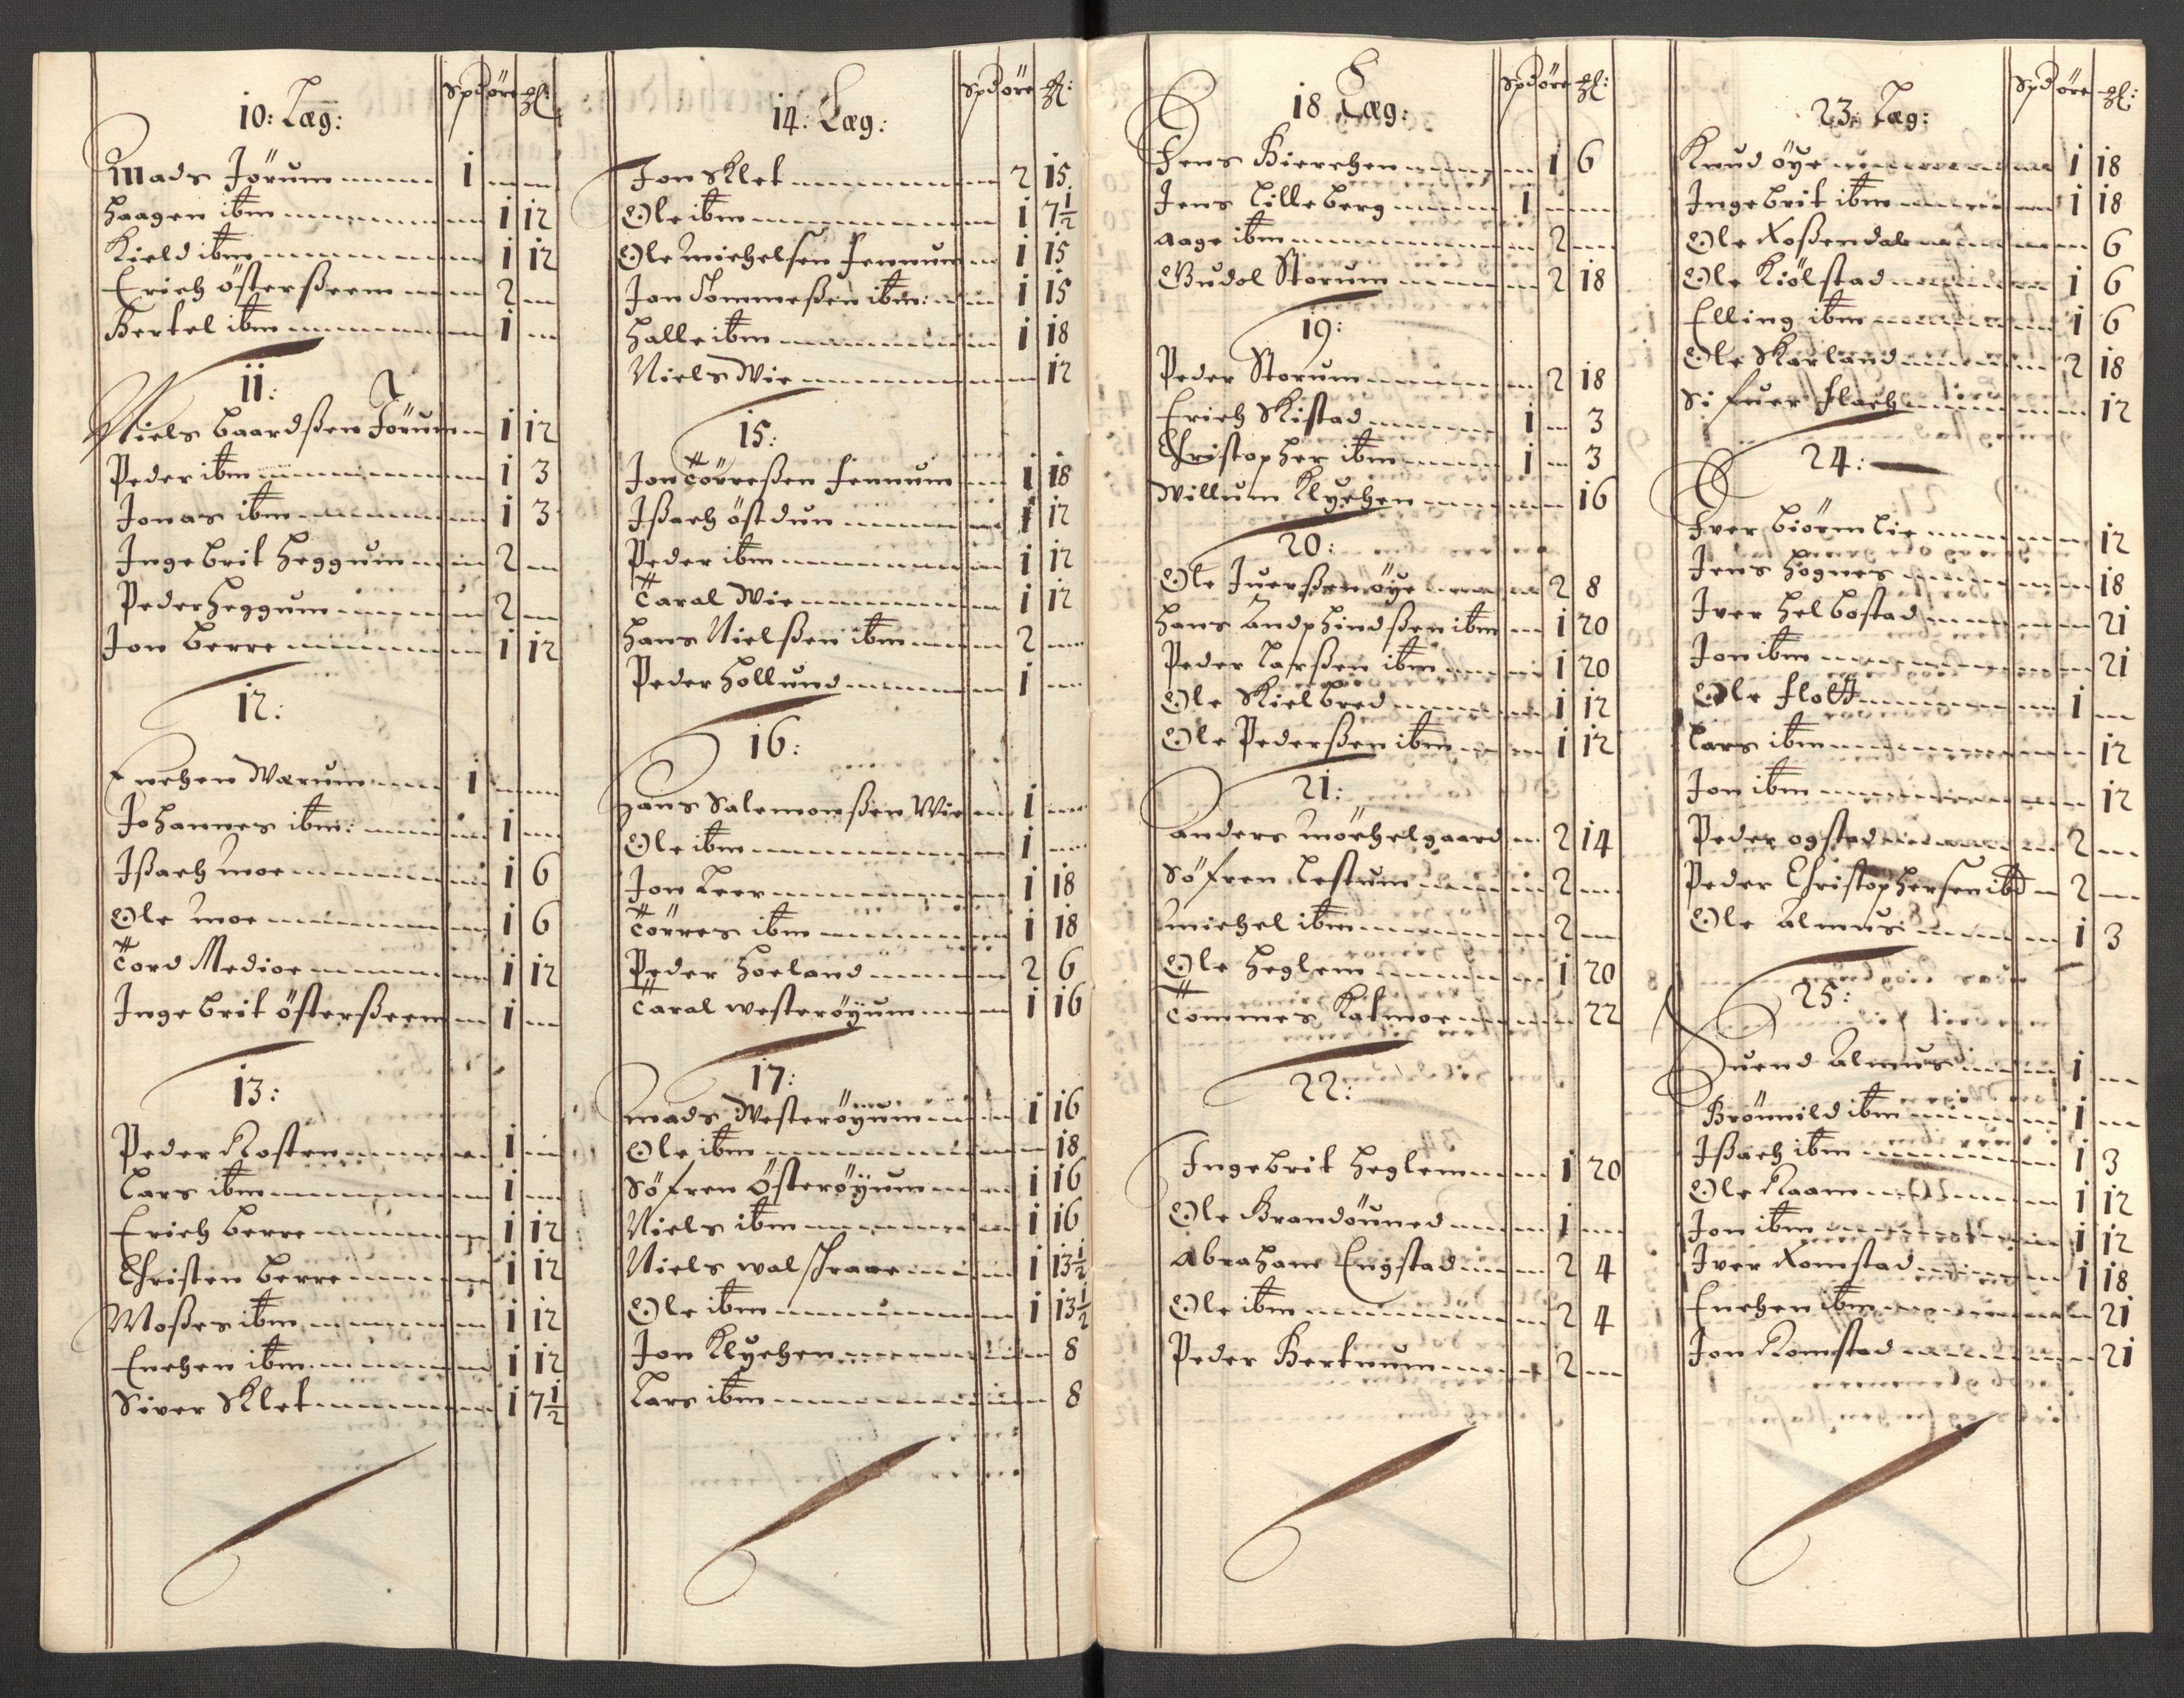 Spd öre gl:
10: Læg:
Mads Jörum 1
Haagen ibm 1 12
Kield ibm 1 12
Erich österßeem 2
Bertel ibm 1
11:
Niels Baardßen Jörum 1 12
Peder ibm 1 3
Jonas ibm 1 3
Ingebrit Heggum 2
Peder Heggum 2
Jon Berre 1 12
12:
Enchen Warum 1
Johannes ibm: 1
Ißach Moe 1 6
Ole Moe 1 6
Tord Medioe 1 12
Ingebrit österßeem 1
13:
Peder Rosten 1
Lars ibm 1
Erich Berre 1 12
Christen Berre 1 12
Moßes ibm 1 12
Enchen ibm 1 12
Siver Klet 1 7½
Spd öre gl:
14: Læg:
Jon Klet 2 15
Ole ibm 1 7½
Ole Michelsen Fennum 1 15
Jon Tommeßen ibm: 1 15
Halle ibm 1 18
Niels Wie 12
15:
Jon Törreßen Fennum 1 18
Ißach östdun 1 12
Peder ibm 1 12
Taral Wie 1 12
Hans Nielßen ibm 2
Peder Hollund 1
16:
Hans Salemonßen Wie 1
Ole ibm 1
Jon Leer 1 18
Törres ibm 1 18
Peder Hoeland 2 6
Taral westeröyum 1 16
17:
Mads Westeröyum 1 16
Ole ibm 18
Söfren Österöyum 1 16
Niels ibm 1 16
Niels walschraae 1 13½
Ole ibm 1 13½
Jon Klychen 8
Lars ibm 8
Spd öre gl:
18 Læg:
Jens Kierchen 1 6
Jens Lilleberg 1
Aage ibm 2
Gudol Storum 2 18
19:
Peder Storum 2 18
Erich Skistad 1 3
Christopher ibm 1 3
Willum Klychen 16
20:
Ole Iuerßen öye 2 8
Hans Andphindßen ibm 1 20
Peder Larßen ibm 1 20
Ole Kielbred 1 12
Ole Pederßen ibm 1 12
21:
Anders Mörchelgaard 2 14
Söfren Lestum 2
Michel ibm 2
Ole Heglem 1 20
Tommes Katmoe 22
22:
Ingebrit Heglem 1 20
Ole Brandöuned 1
Abraham Engstad 2 4
Ole ibm 2 4
Peder Bertnum 2
Spd öre gl:
23: Læg:
Knud öye 1 18
Ingebrit ibm 1 18
Ole Roßendal 6
Ole Kiölstad 1 6
Elling ibm 1 6
Ole Skarland 2 18
Sifuer Flach 12
24:
Iver Biörnlie 12
Jens Hognes 18
Iver Helbostad 21
Jon ibm 21
Ole Flott 1
Lars ibm 12
Jon ibm 12
Peder ogstad 2
Peder Christophersen ibd 2
Ole Almus 1 3
25:
Suend Almus 1
Brönnild ibm 1
Ißach ibm 1 3
Ole Raam 1 12
Jon ibm 1 12
Iver Romstad 1 18
Enchen ibm 21
Jon Romstad 21